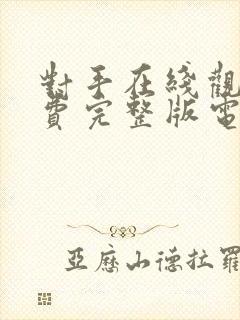 對手在线觀
費完整版電
亞歷山德拉羅